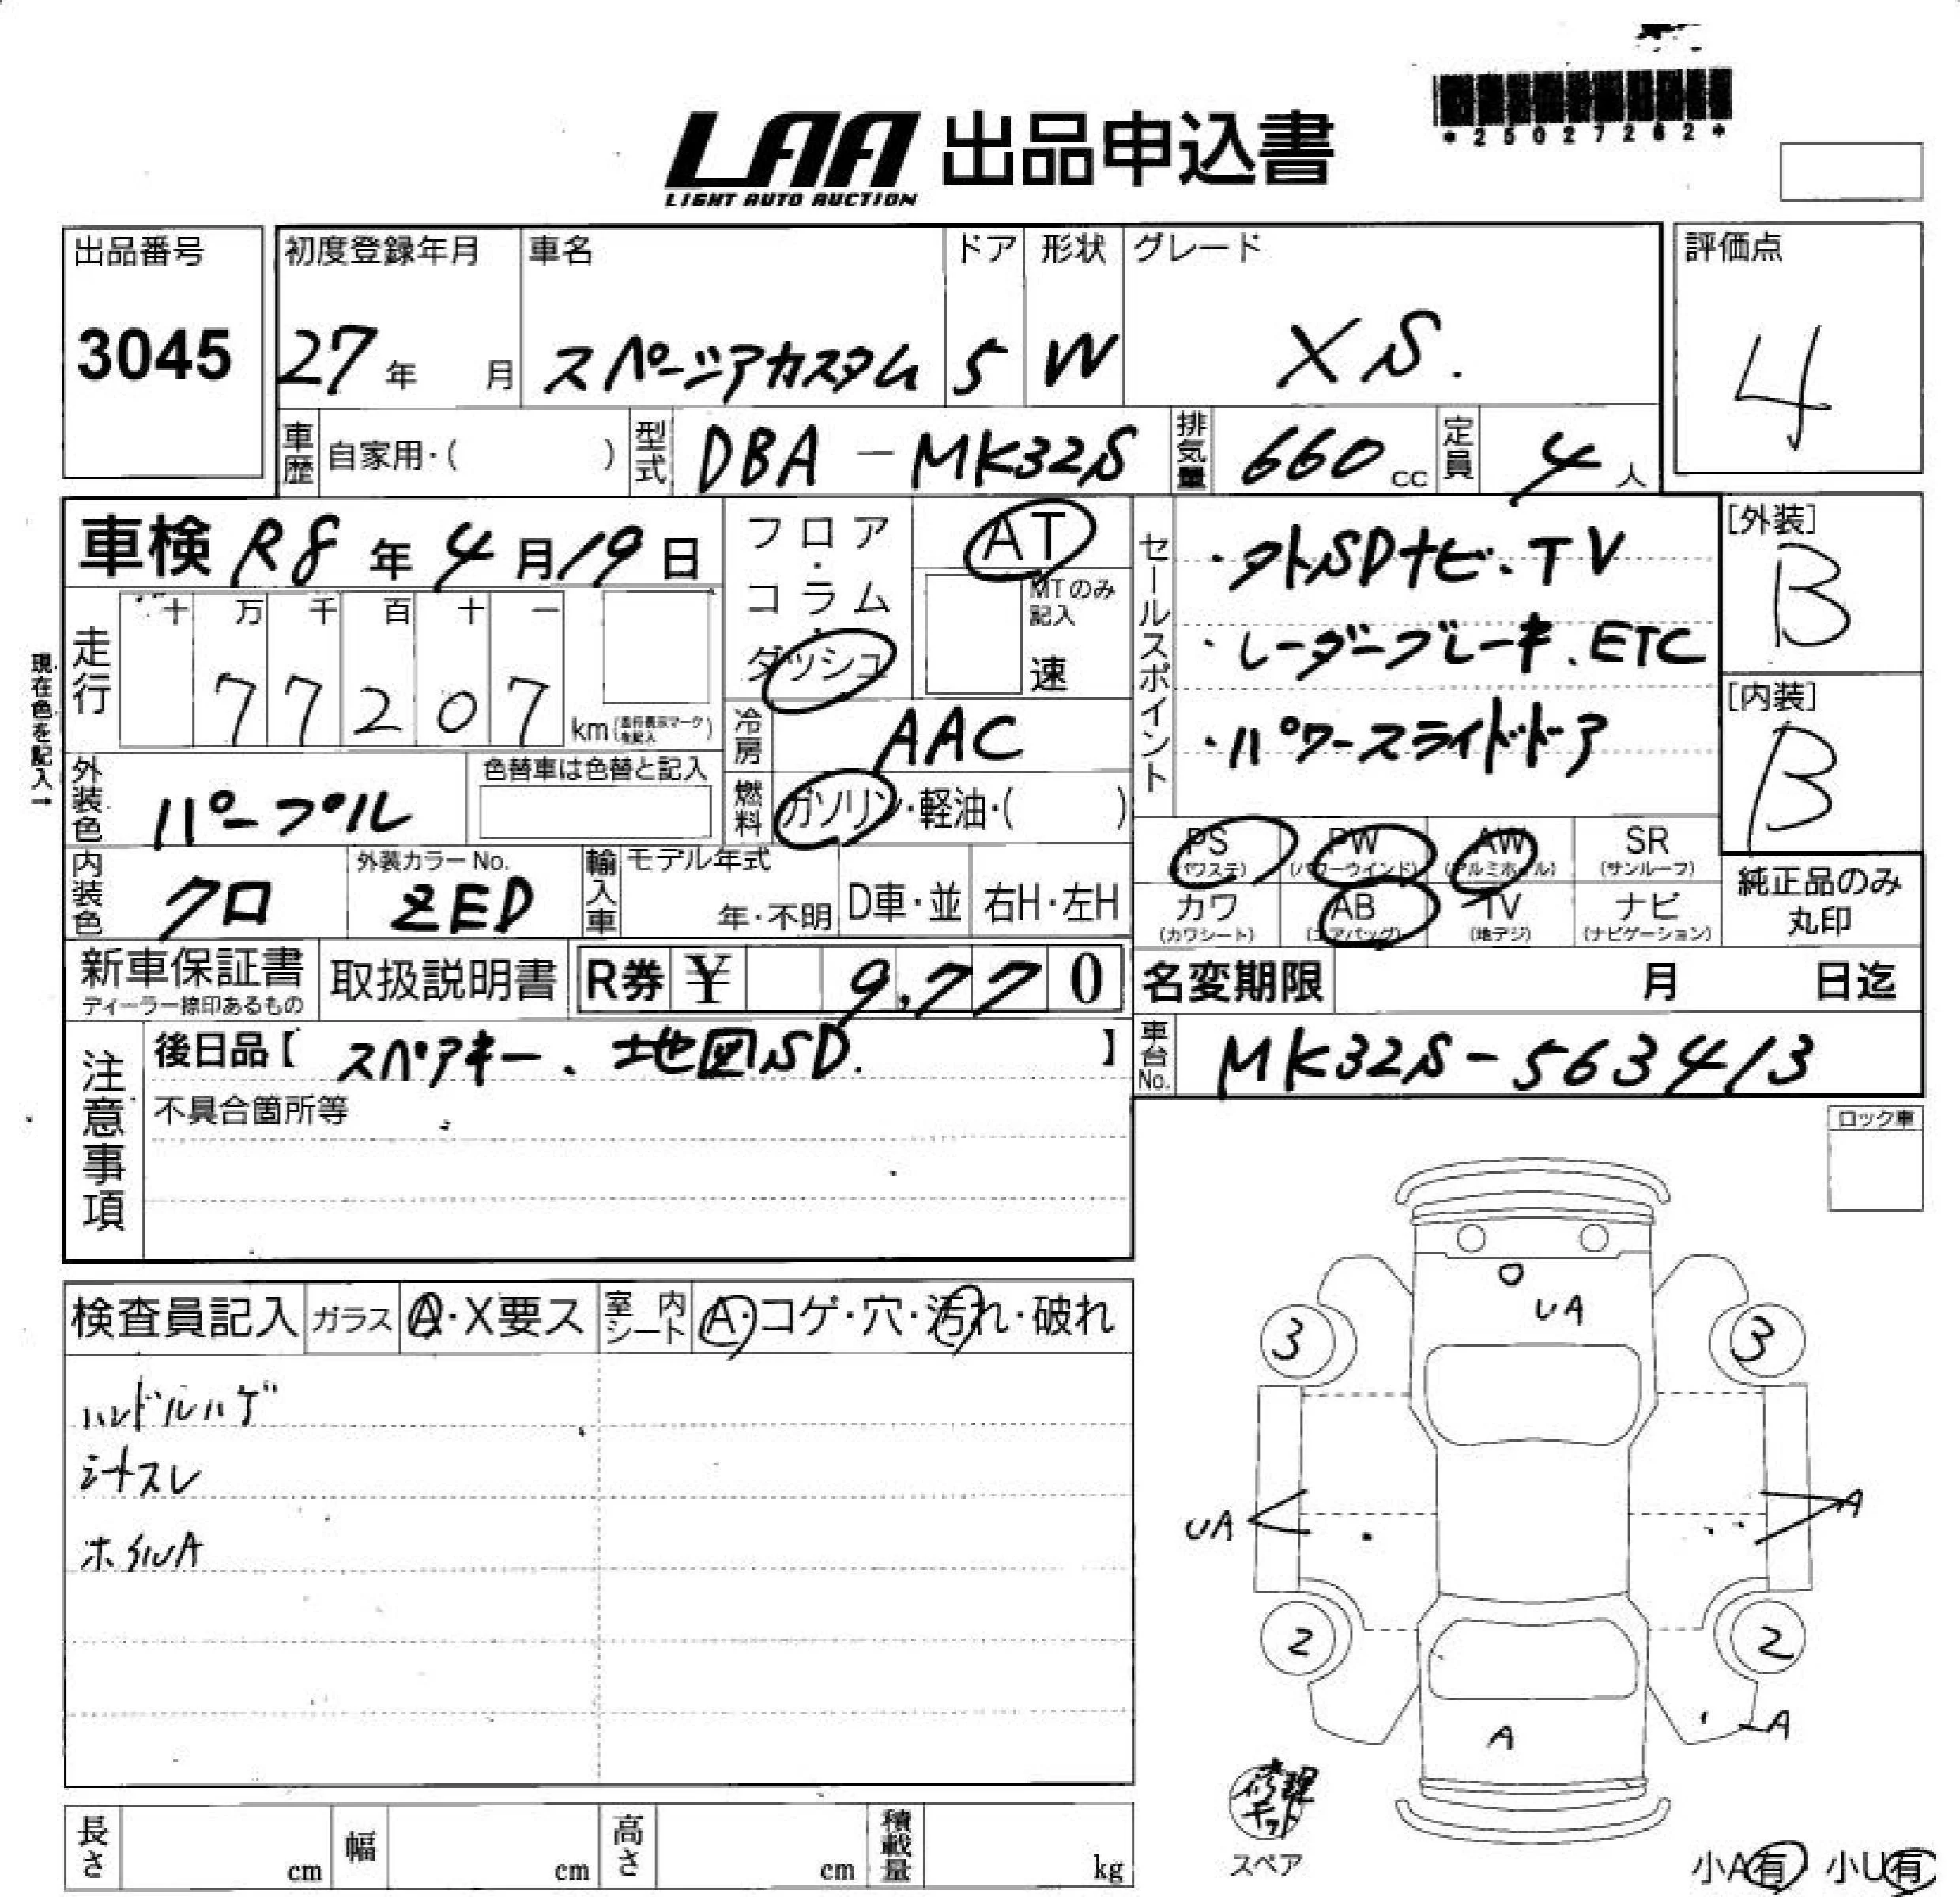 *25027262*
LAA 出品申込書
LIGHT AUTO AUCTION
出品番号 初度登録年月 車名 ドア 形状 グレード 評価点
3045 27年 月 スペーシアカスタム 5 W XS. 4
車歴 自家用・( ) 型式 DBA-MK32S 排気量 660cc 定員 4人
車検 R8年4月19日
フロア・コラム・ダッシュ
AT
MTのみ記入
速
セールスポイント
・外SDナビ、TV
・レーダーブレーキ、ETC
・パワースライドドア
[外装]
B
[内装]
B
現在色を記入→
走行 十 万 千 百 十 一
77207 km
冷房 AAC
外装色 パープル
色替車は色替と記入
燃料 ガソリン・軽油・( )
PS (パワステ) PW (パワーウインド) AW (アルミホイル) SR (サンルーフ)
カワ (カワシート) AB (エアバッグ) TV (地デジ) ナビ (ナビゲーション)
純正品のみ丸印
内装色 クロ
外装カラーNo. ZED
輸入車 モデル年式 年・不明 D車・並 右H・左H
新車保証書 ディーラー捺印あるもの
取扱説明書
R券 ¥ 9,770
名変期限 月 日迄
注意事項
後日品【 スペアキー、地図SD. 】
車台No. MK32S-563413
不具合箇所等
ロック車
検査員記入 ガラス A・X要ス 室内シート A・コゲ・穴・汚れ・破れ
ハンドルハゲ
シートスレ
ホイルA
UA
3 3
UA A
2 2
A A
修理キット
スペア
小A有 小U有
長さ cm 幅 cm 高さ cm 積載量 kg